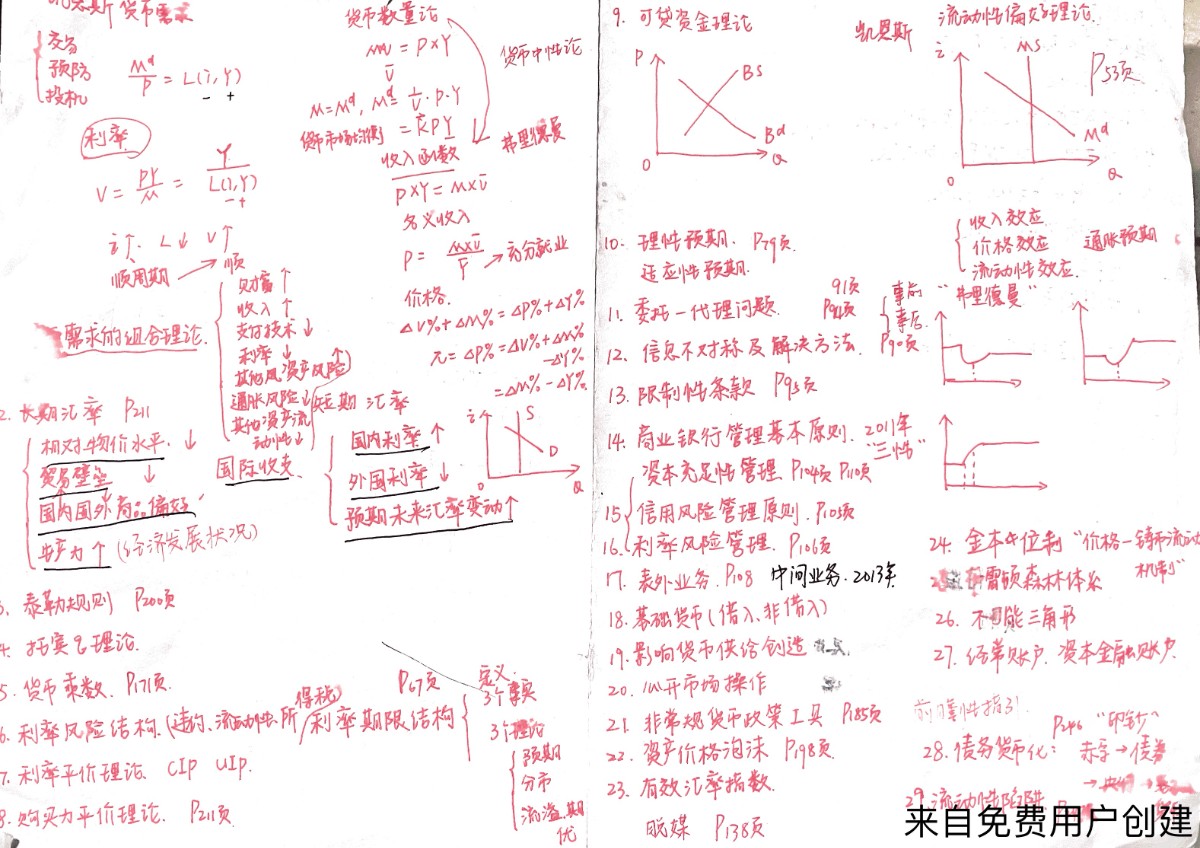 货币需求
交易
预防
投机
Mᵈ/P = L(i, Y)
- +
利率
V = PY/M = Y/L(i,Y)
- +
i↑. L↓ V↑
顺周期 → 顺
需求的组合理论.
财富↑
收入↑
支付技术↓
利率↓
其他资产风险↑
通胀风险↓
其他资产流动性↓
货币数量论
货币中性论
M = Mᵈ,
货币市场均衡
= k̄PY
弗里德曼
收入函数
P×Y = M×V̄
名义收入
P = M×V̄/Ȳ → 充分就业
价格.
ΔV% + ΔM% = ΔP% + ΔY%
π = ΔP% = ΔV% + ΔM% - ΔY%
= ΔM% - ΔY%
2. 长期汇率 P211
相对物价水平. ↓
贸易壁垒 ↓
国内国外商品偏好
生产力↑ (经济发展状况)
国际收支
短期汇率
国内利率↑
外国利率↓
预期未来汇率变动↑
i↑
S
D
0
Q
3. 泰勒规则 P200页
4. 托宾q理论.
5. 货币乘数. P171页.
6. 利率风险结构.(违约、流动性、所得税)
利率期限结构
P67页
定义
3个事实
3个理论
预期
分市
流溢.期优
7. 利率平价理论. CIP UIP.
8. 购买力平价理论. P211页
9. 可贷资金理论
P
Bs
Bd
0
Q
凯恩斯
流动性偏好理论.
P53页
i
MS
Mᵈ
0
Q
收入效应
价格效应
流动性效应.
通胀预期
"弗里德曼"
10. 理性预期. P79页
适应性预期.
11. 委托-代理问题
91页
事前
事后
12. 信息不对称及解决方法. P90页
13. 限制性条款 P95页
14. 商业银行管理基本原则. 2011年
"三性"
资本充足性管理 P104页 P110页
15 信用风险管理原则. P105页
16. 利率风险管理. P106页
17. 表外业务. P108 中间业务. 2013年
18. 基础货币(借入、非借入)
19. 影响货币供给创造
20. 公开市场操作
21. 非常规货币政策工具 P185页
22. 资产价格泡沫 P198页
23. 有效汇率指数.
脱媒 P138页
24. 金本位制 "价格-铸币流动机制"
布雷顿森林体系
26. 不可能三角形
27. 经常账户. 资本金融账户
前瞻性指引.
28. 债务货币化: 赤字→债券
P246 "印钞"
29. 流动性陷阱.
来自免费用户创建